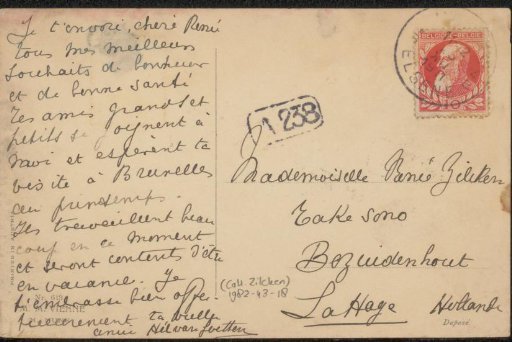 Je t'envoie, chère Renée
tous mes meilleurs
souhaits de bonheur
et de bonne santé
Tes amis grands et
petits se joignent à
moi et espèrent ta
visite à Bruxelles
au printemps.
Ils travaillent beau
coup en ce moment
et seront contents d'être
en vacance. Je
t'embrasse bien affec
tueusement ta vieille
amie Hil van
BELGIQUE BELGIË
A 238
Mademoiselle Renée Zilcken
Take sono
Bezuidenhout
La Haye Hollande
(Coll. Zilcken)
1982-43-18
Deposé.
M. M. VIENNE